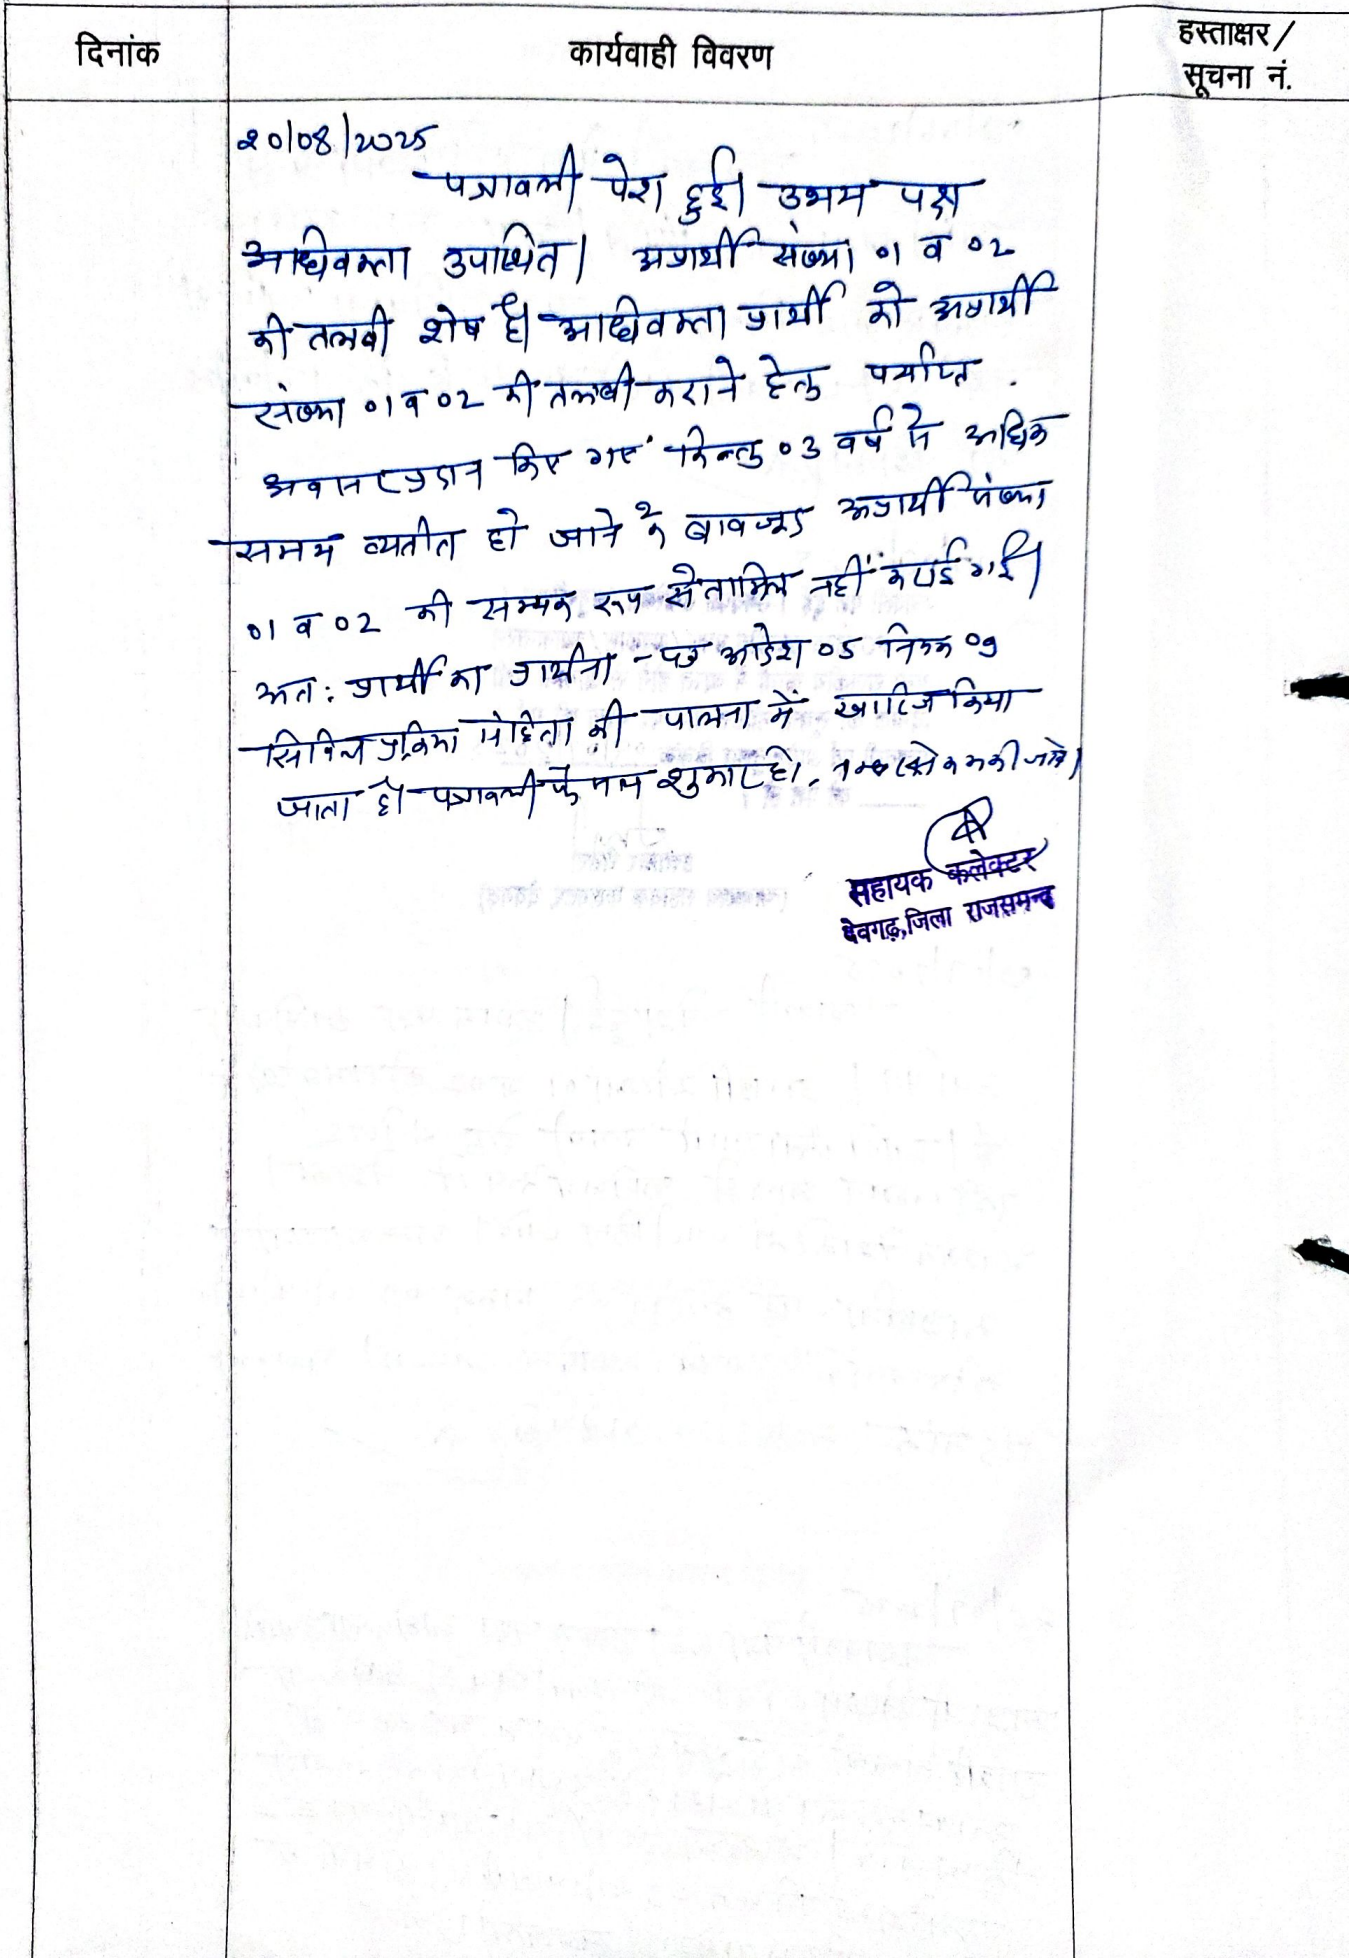 दिनांक
कार्यवाही विवरण
हस्ताक्षर /
सूचना नं.
20/08/2025
पत्रावली पेश हुई। उभय पक्ष
अधिवक्ता उपस्थित। अप्रार्थी संख्या 01 व 02
की तलबी शेष है। अधिवक्ता प्रार्थी को अप्रार्थी
संख्या 01 व 02 की तलबी कराने हेतु पर्याप्त
अवसर प्रदान किए गए किन्तु 03 वर्ष से अधिक
समय व्यतीत हो जाने के बावजूद अप्रार्थी संख्या
01 व 02 की सम्यक रूप से तामिल नहीं कराई गई।
अतः प्रार्थी का प्रार्थना-पत्र आदेश 05 नियम 09
सिविल प्रक्रिया संहिता की पालना में खारिज किया
जाता है। पत्रावली फैसल शुमार हो, नम्बर से कम की जावे।
सहायक कलेक्टर
देवगढ़, जिला राजसमन्द